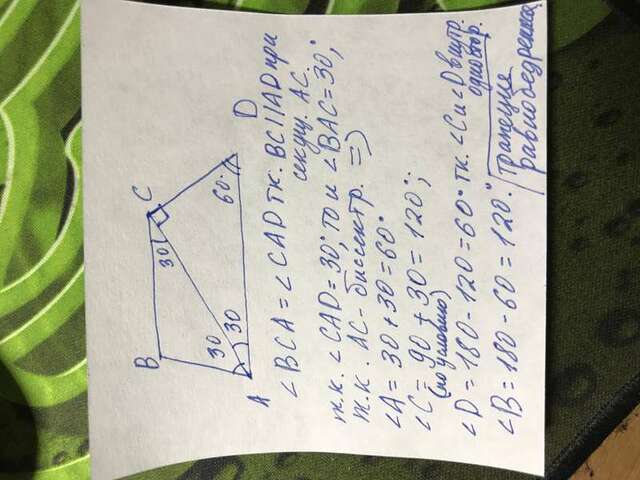 B
C
30
30
30
60°
A
D
∠BCA = ∠CAD т.к. BC||AD при
секущ. AC.
т.к. ∠CAD = 30°, то и ∠BAC = 30°,
т.к. AC - биссектр. =>
∠A = 30 + 30 = 60°
∠C = 90 + 30 = 120°;
(по условию)
∠D = 180 - 120 = 60° т.к. ∠C и ∠D внутр.
одностор.
∠B = 180 - 60 = 120.°
трапеция
равнобедренная.